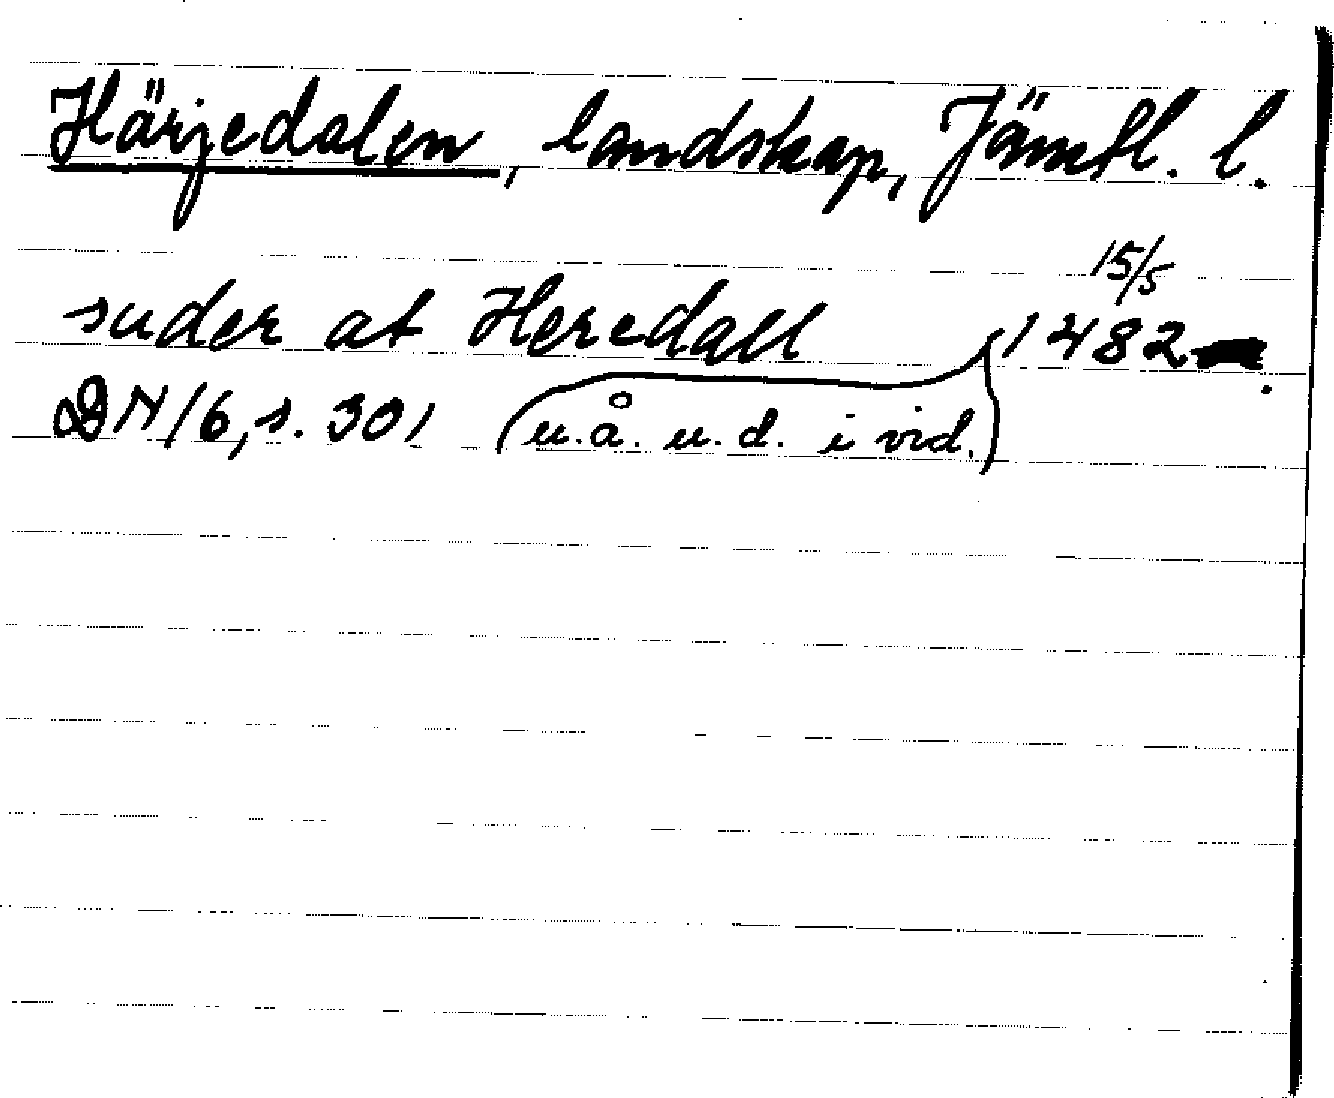 Härjedalen, landskap, Jämtl. l.
15/5
suder at Heredall 1482
DN16, s. 301 (u.å. u.d. i vid.)